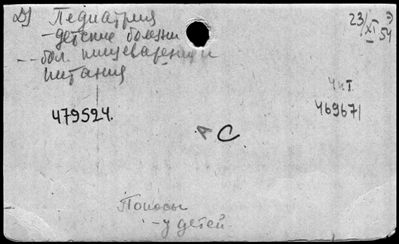 Д) Педиатрия
- детские болезни
-- бол. пищеварения и
питания
23/XI 54
Чит.
479524.
469671
А С
Поносы
- у детей.